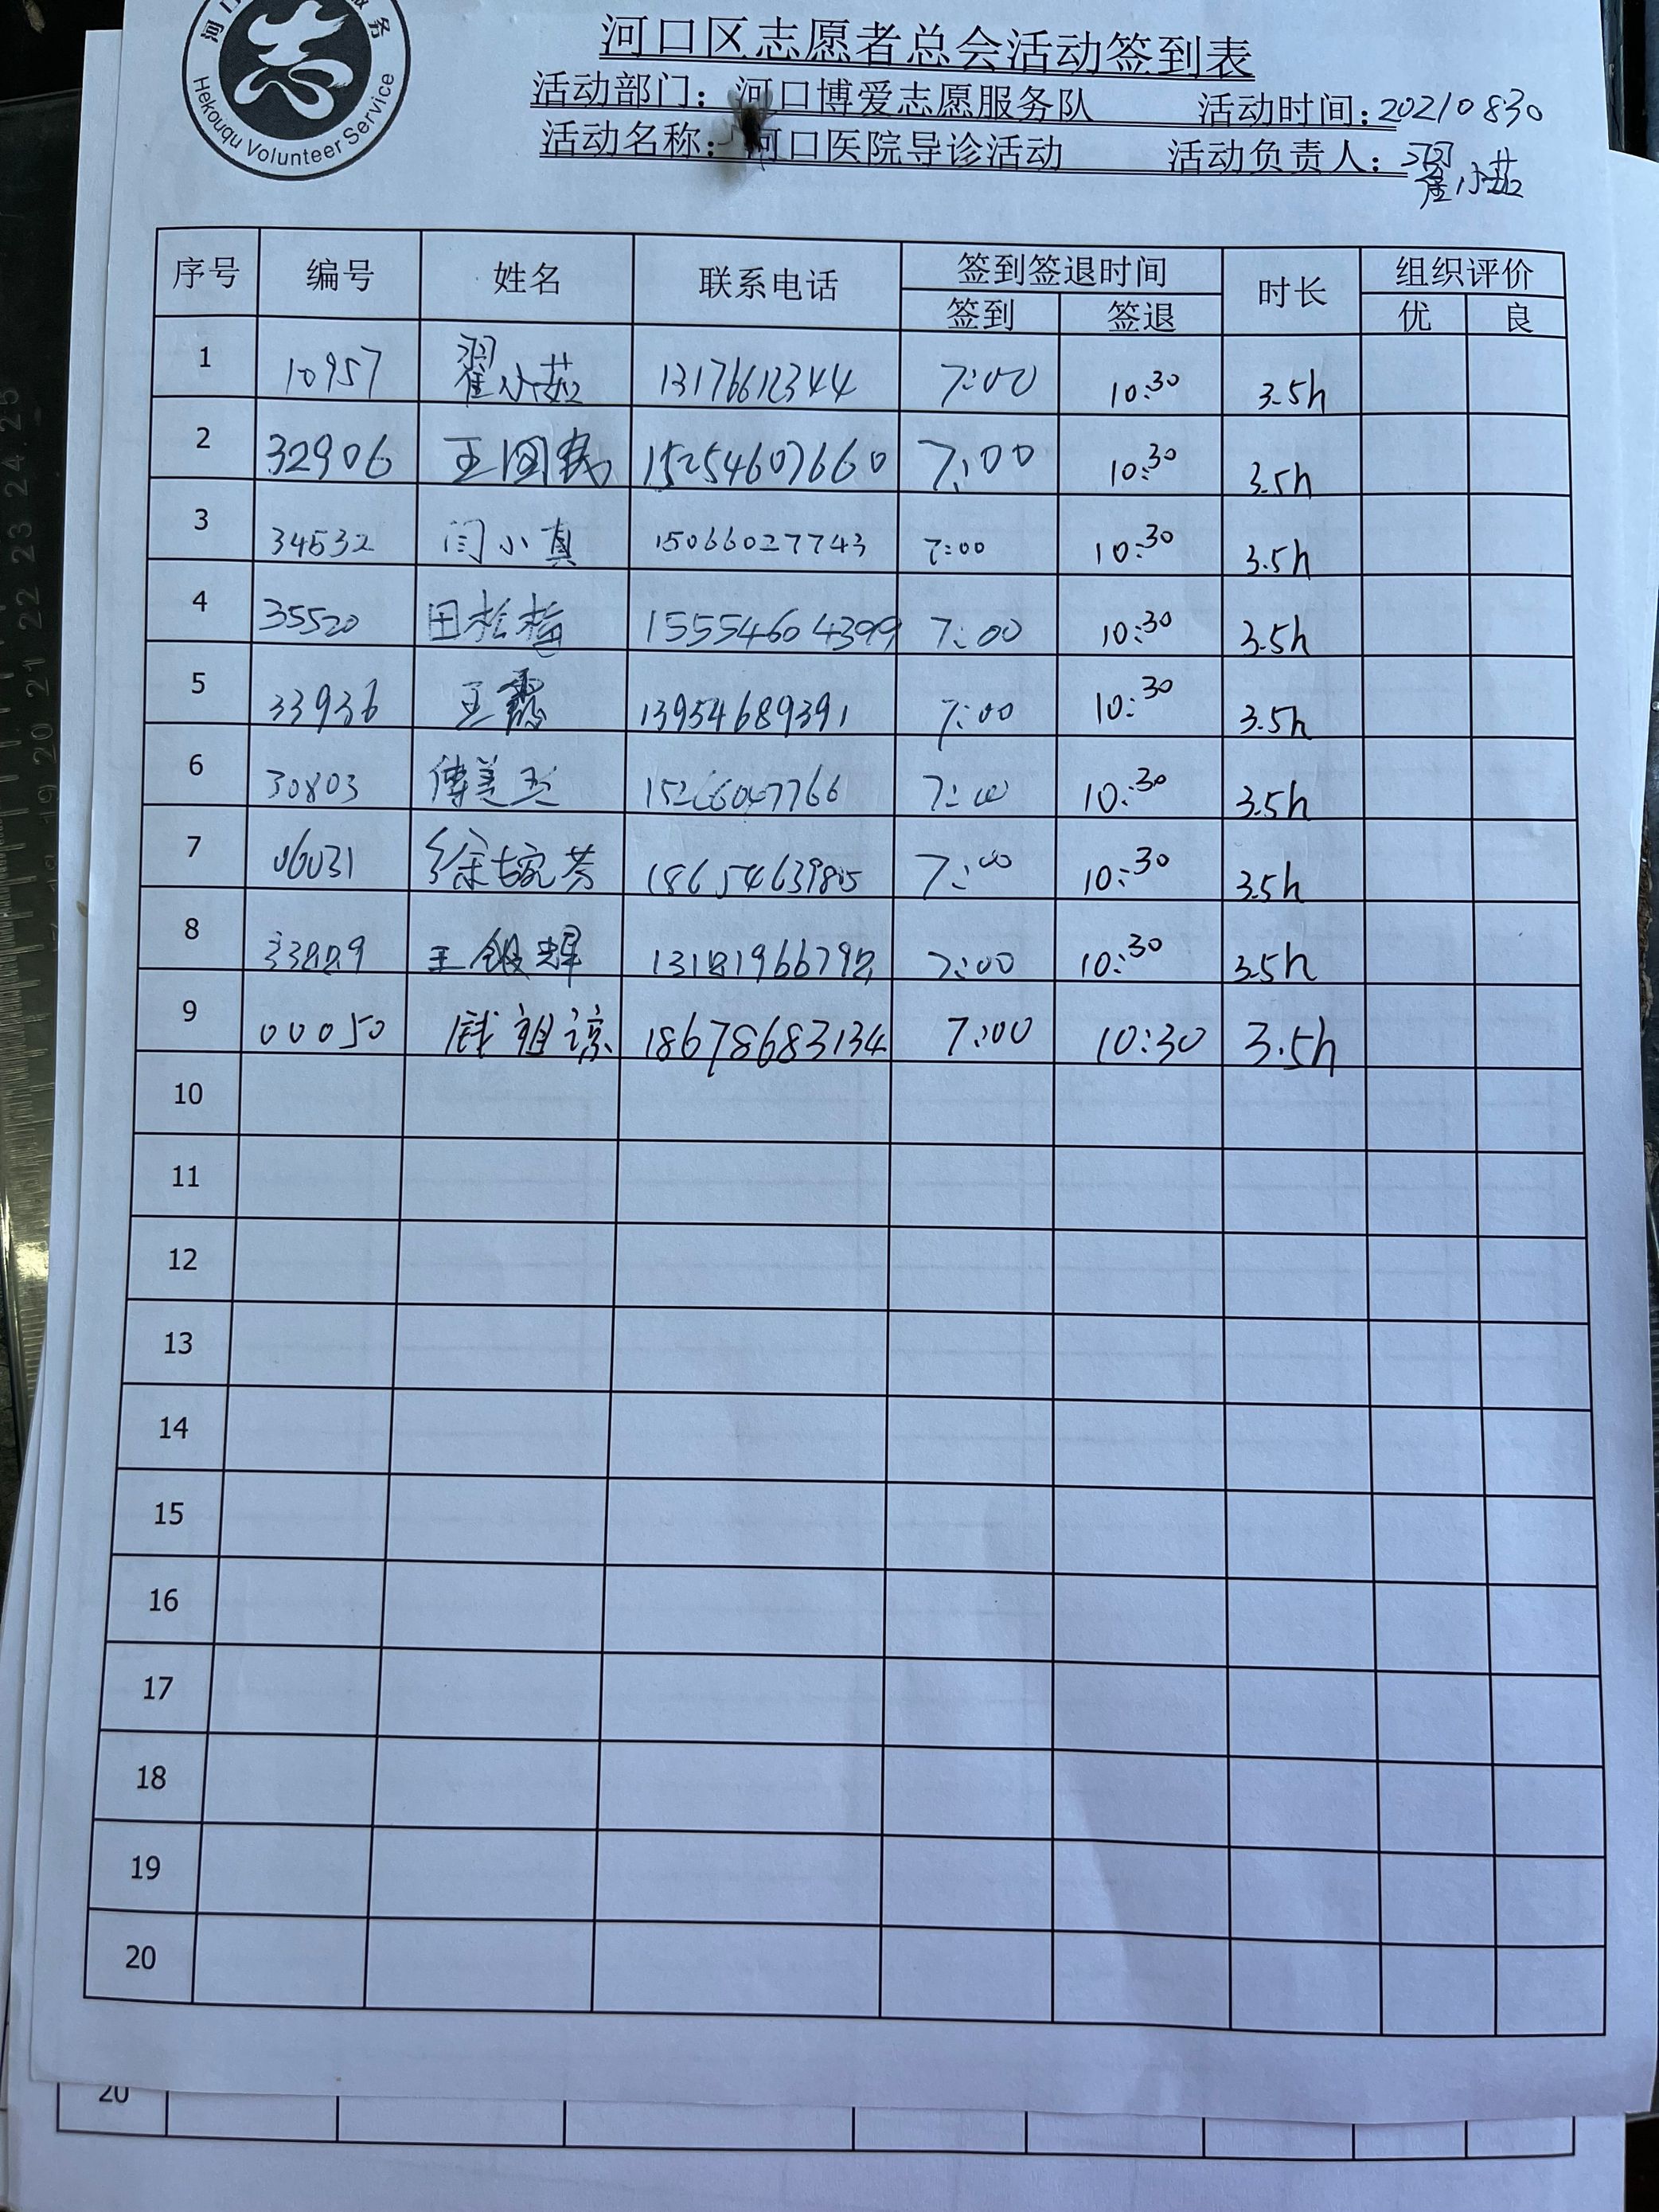 Hekouqu Volunteer Service
河口区志愿者总会活动签到表
活动部门：河口博爱志愿服务队 活动时间：20210830
活动名称：河口医院导诊活动 活动负责人：翟小茹
序号 编号 姓名 联系电话 签到签退时间 时长 组织评价
签到 签退 优 良
1 10957 翟小茹 13176612344 7:00 10:30 3.5h
2 32906 王国 15254607660 7:00 10:30 3.5h
3 34532 闫小真 15066027743 7:00 10:30 3.5h
4 35520 田松梅 15554604399 7:00 10:30 3.5h
5 33936 王 13954689391 7:00 10:30 3.5h
6 30803 傅美玉 15266047766 7:00 10:30 3.5h
7 06031 徐婉芳 7:00 10:30 3.5h
8 王银辉 7:00 10:30 3.5h
9 00050 祖谅 18678683134 7:00 10:30 3.5h
10
11
12
13
14
15
16
17
18
19
20
20